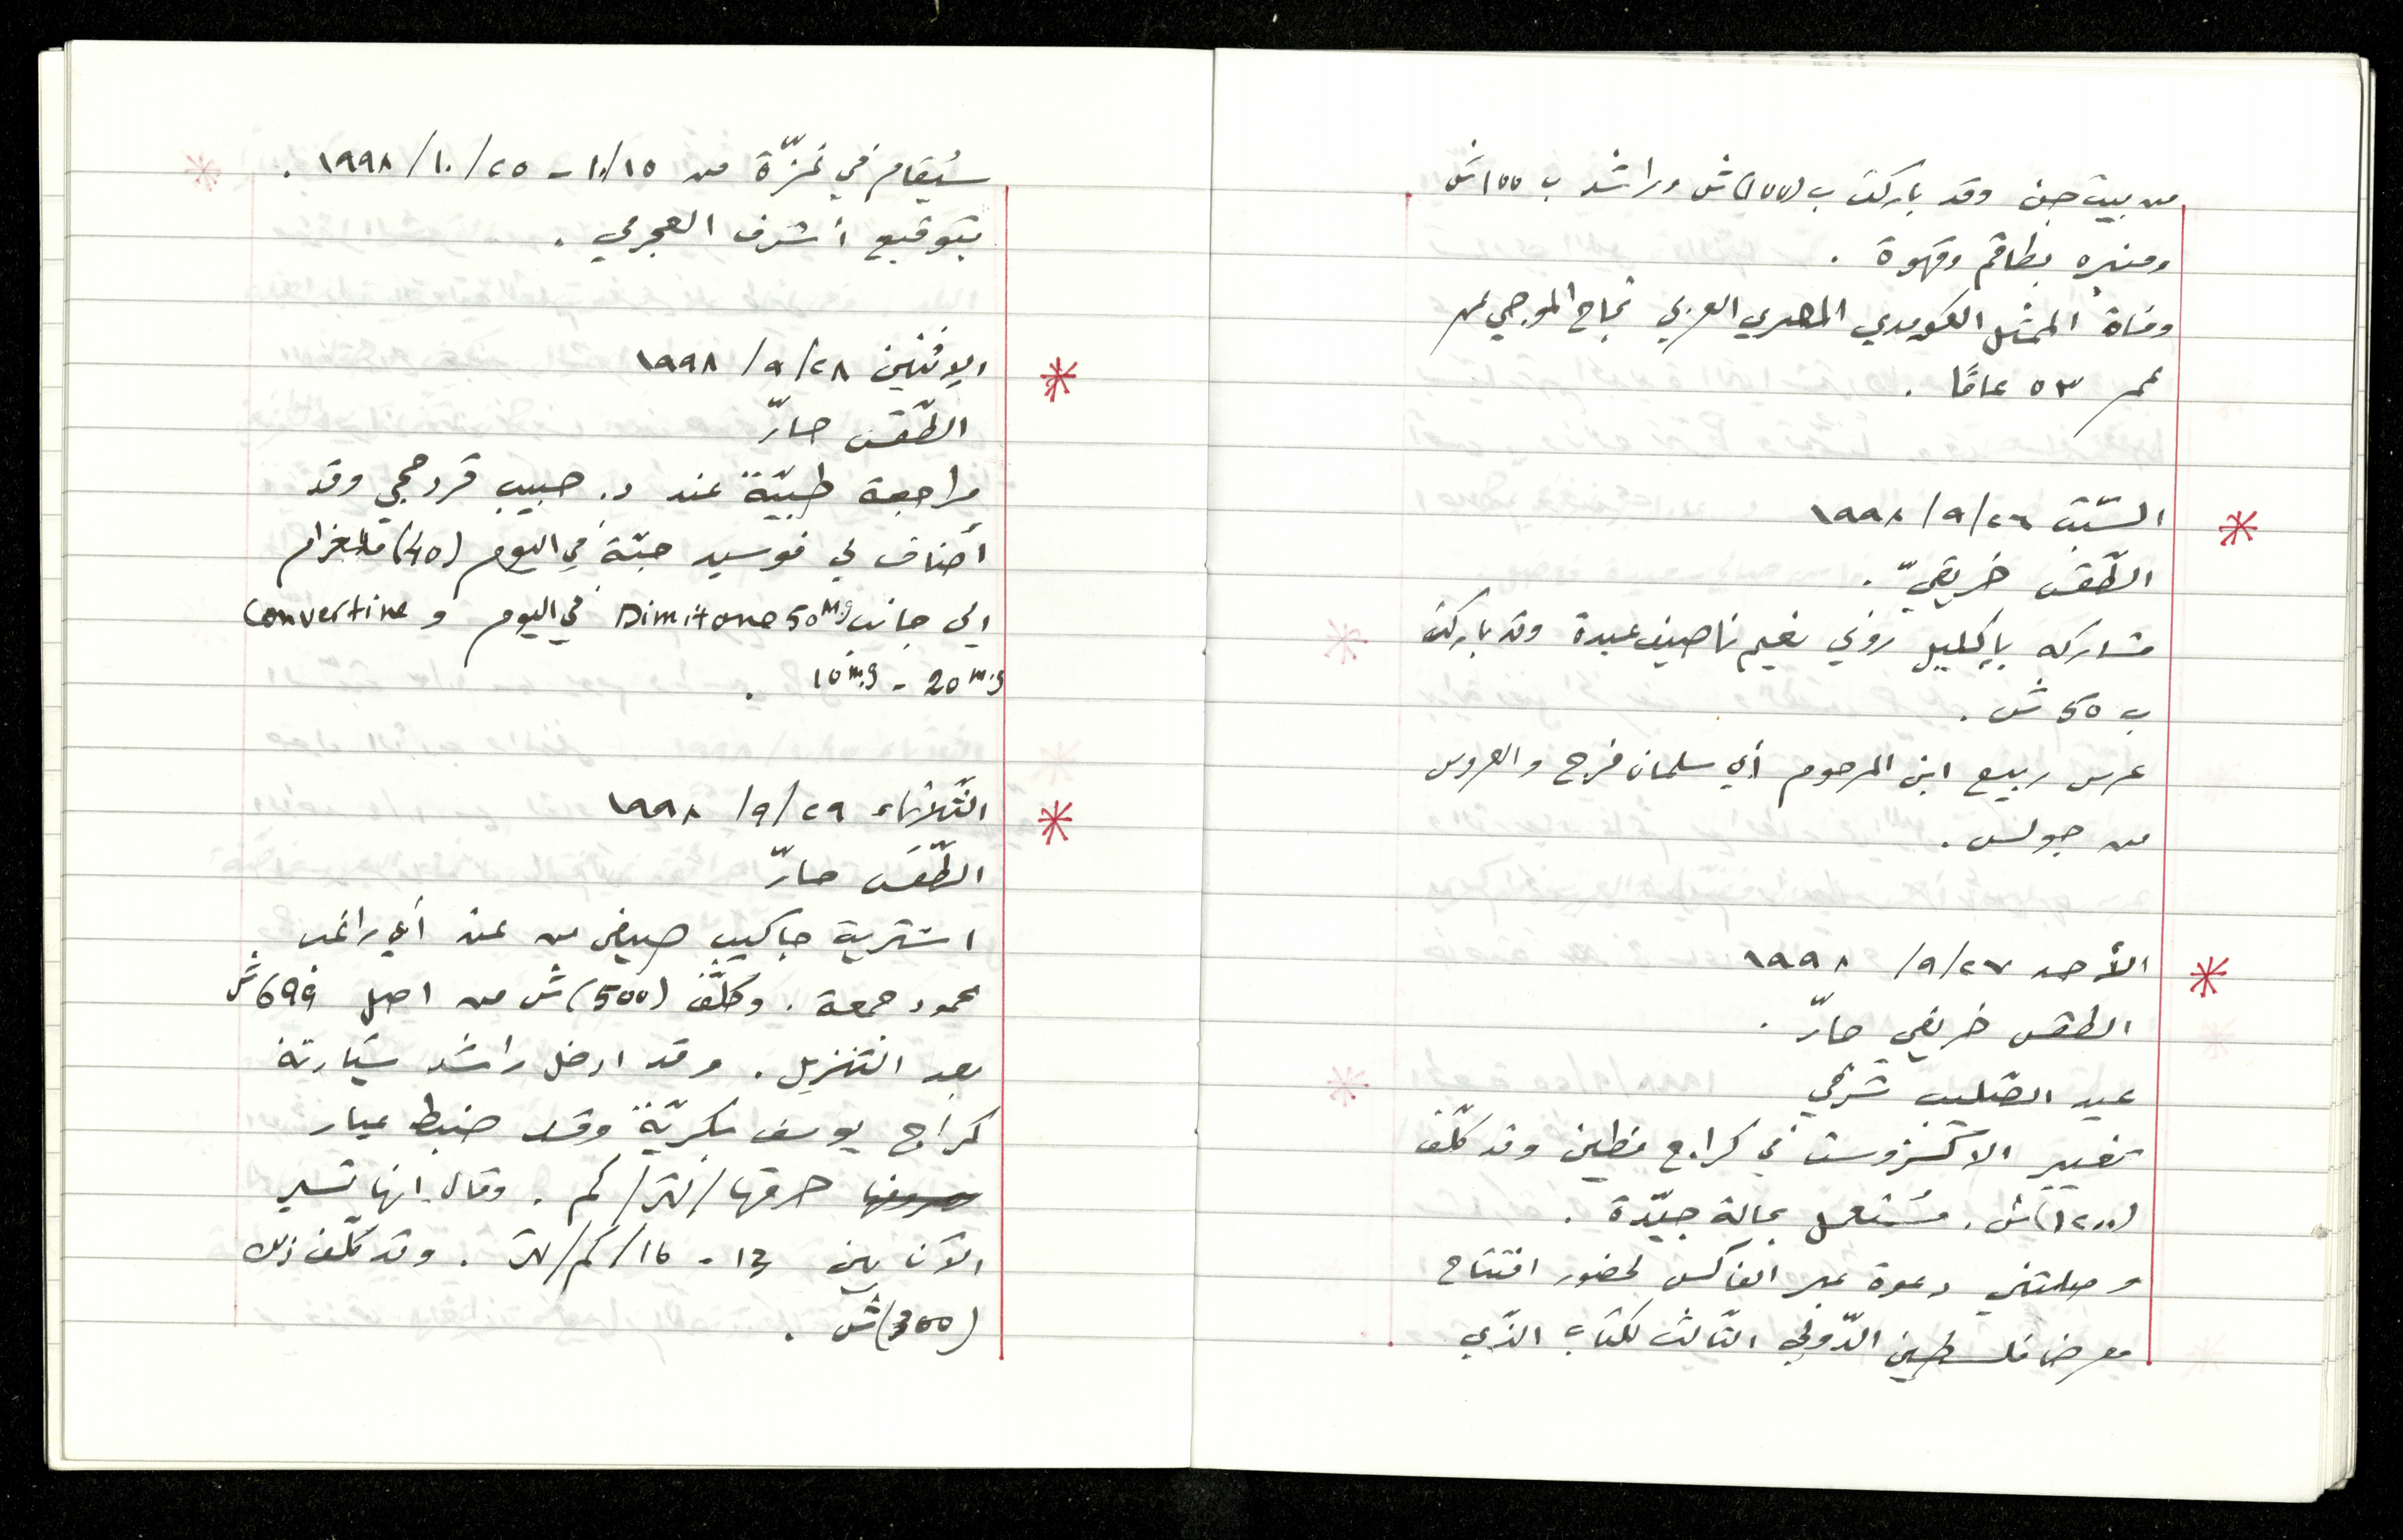 من بيت جن وقد باركت ب (100) ش وراشد ب 100 ش
ومنيره بطاقم وقهوة .
وفاة الممثل الكوميدي المصري العربي نجاح الموجي عن
عمر ٥٣ عامًا .
* السّبت ٢٦/٩/١٩٩٨
الطّقس خريفيّ .
مشاركه بإكليل روني نعيم ناصيف عبدة وقد باركت
ب 50 ش .
عرس ربيع ابن المرحوم أبي سلمان فرج والعروس
من جولس .
* الأحد ٢٧/٩/ ١٩٩٨
الطقس خريفي حارّ .
عيد الصّليب شرقي
تغيير الاكتزوست في كراج فطين وقد كلّف
(١٢٠٠) ش . مُستعمل بحالة جيّدة .
وصلتني دعوة عبر الفاكس لحضور افتتاح
معرض فلسطين الدّولي الثّالث للكتاب الذّي
سيُقام في غزّة من ١٠/١٥ - ٢٥/١٠/١٩٩٨ .
بتوقيع أشرف العجرمي .
* الإثنين ٢٨/٩/ ١٩٩٨
الطّقس حارّ
مراجعة طبيّة عند د. حبيب قردحجي وقد
أضاف لي فوسيد حبّة في اليوم (40) ملغرام
الى جانب Dimitone 50 M.g في اليوم و Convertine
10 m.g - 20 m.g .
* الثّلاثاء ٢٩/٩/ ١٩٩٨
الطّقس حارّ
اشتريت جاكيب صيفي من عند أبي راغب
محمود جمعة . وكلّف (500) ش من اصل 699 ش
بعد التنزيل . وقد ادخل راشد سيّارتة
كراج يوسف بكريّة وقد ضبط عيار
حرقها/لتر/كم . وقال انها تسير
الآن بين 13 - 16/كم/لتر . وقد كلّف ذلك
(300) ش .